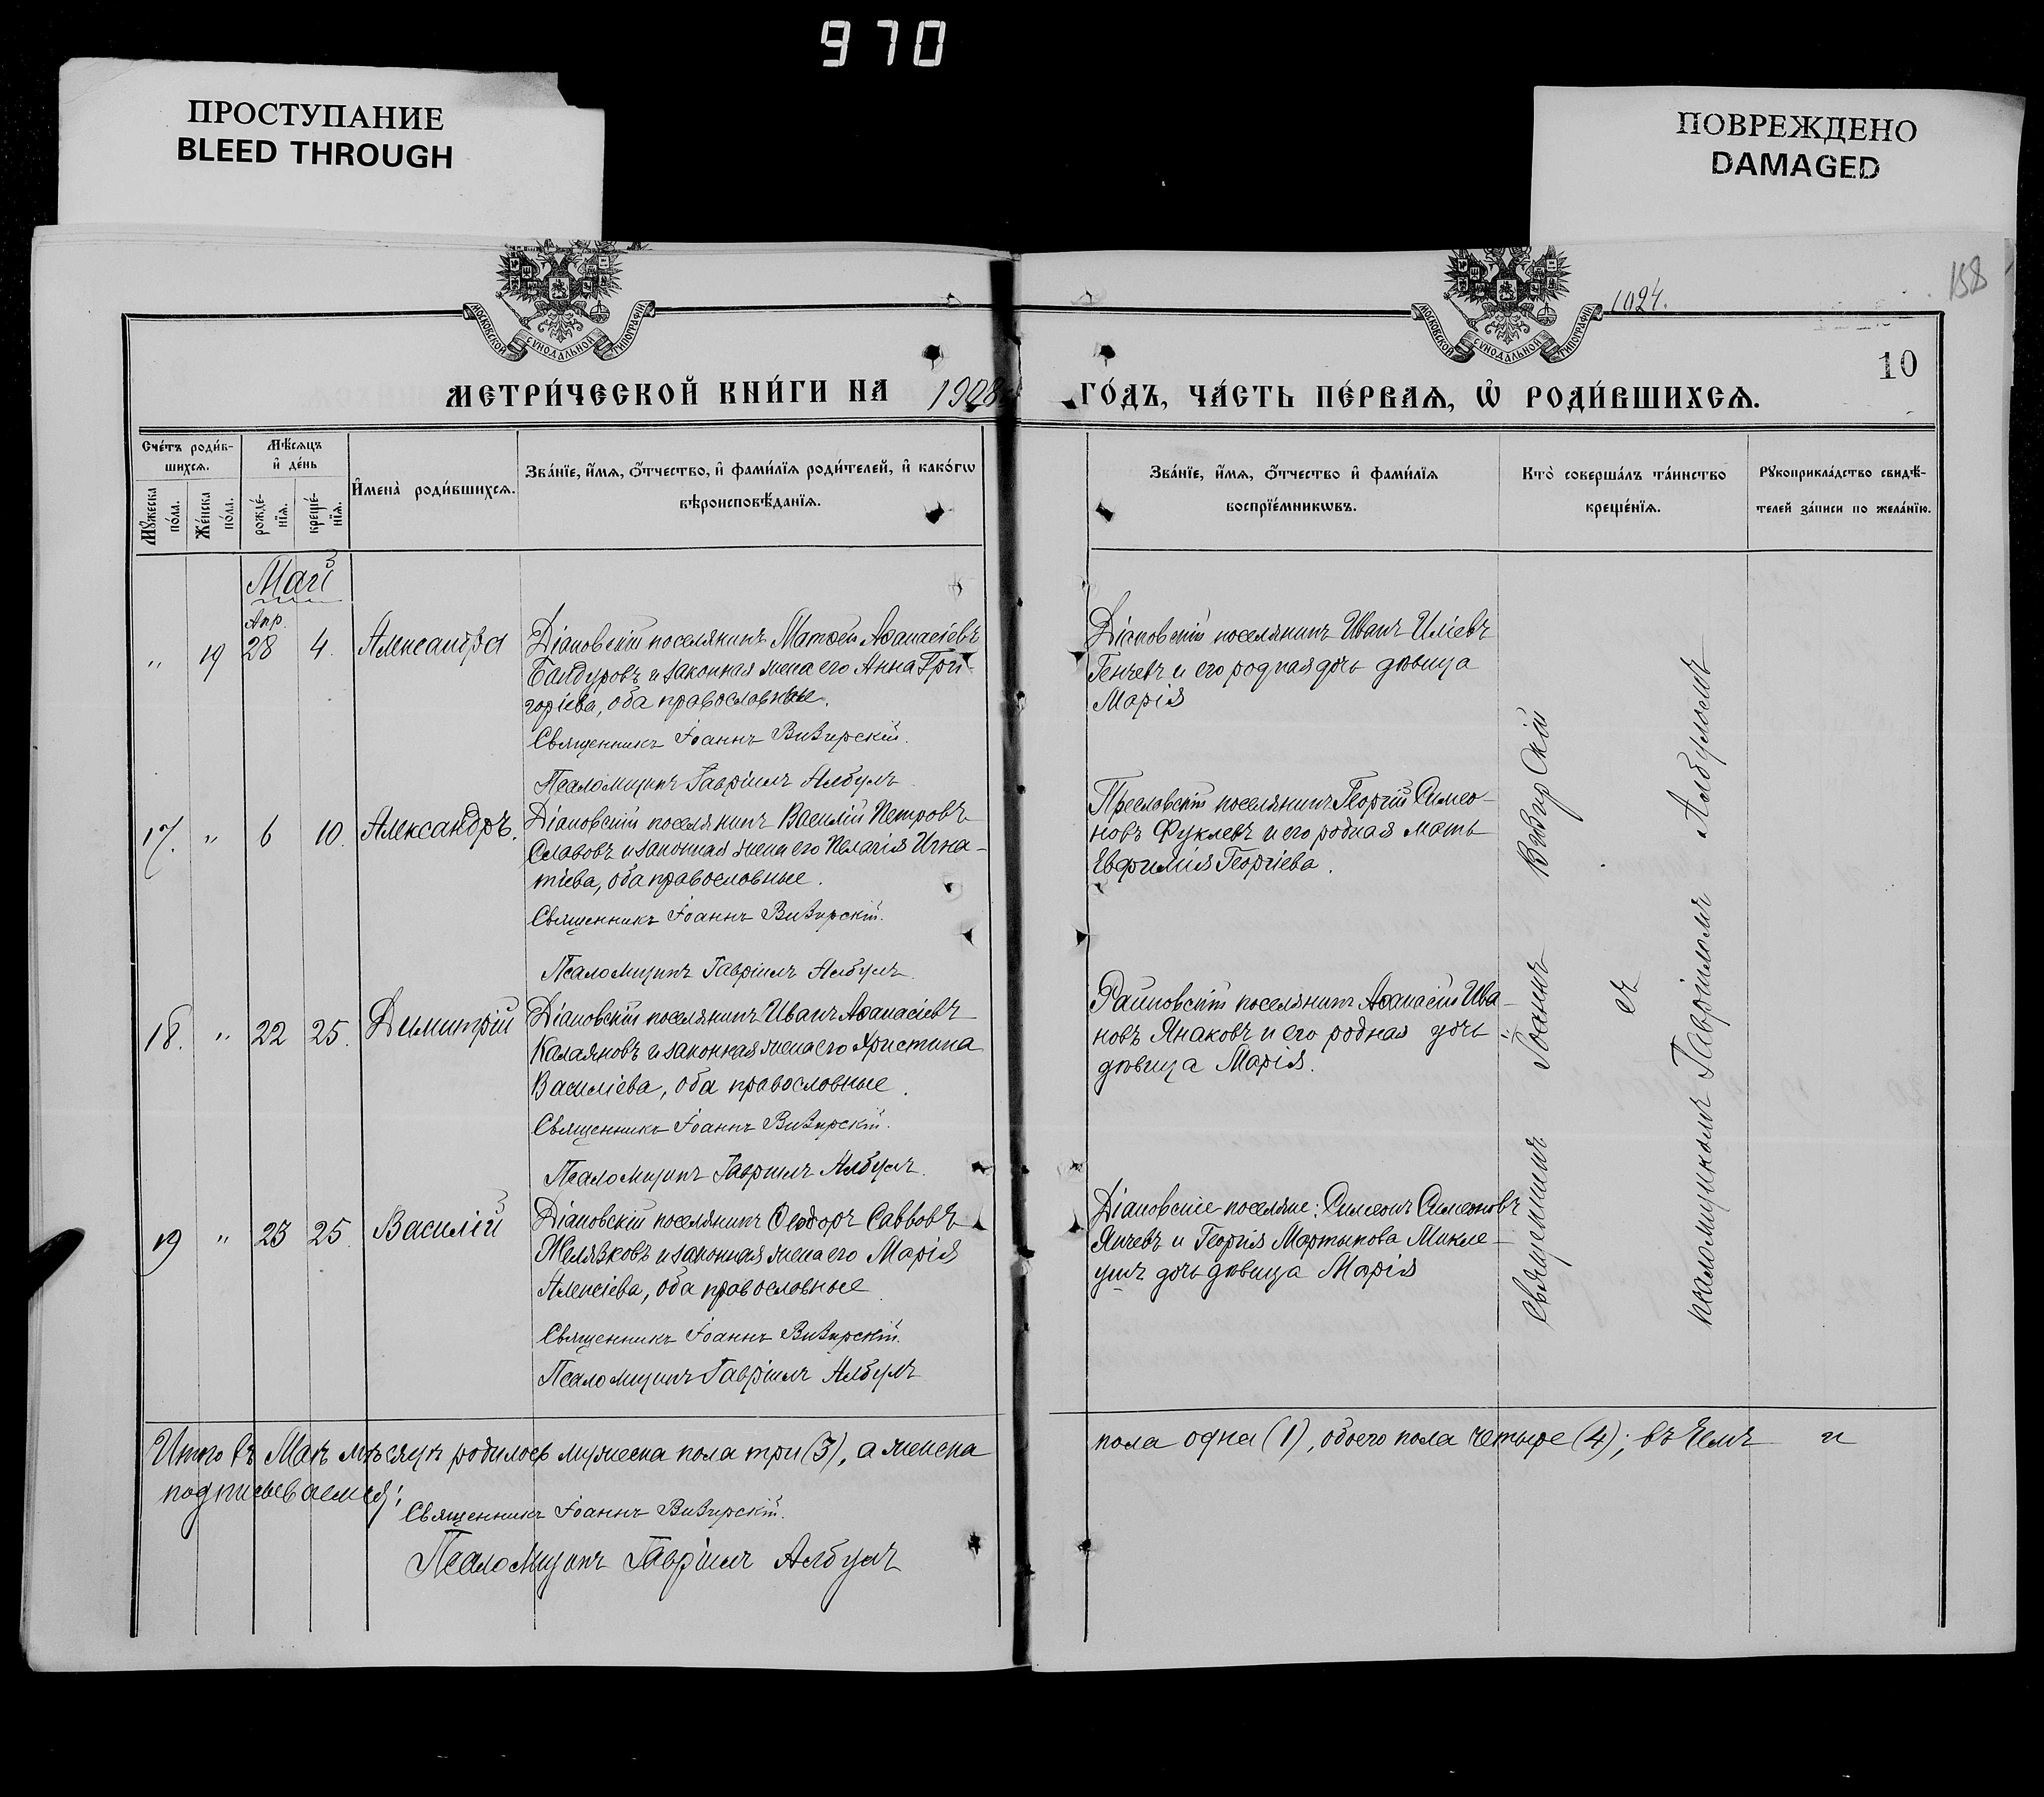 970
ПРОСТУПАНИЕ
BLEED THROUGH
ПОВРЕЖДЕНО
DAMAGED
МОСКОВСКОЙ СѴНОДАЛЬНОЙ ТИПОГРАФІИ
МОСКОВСКОЙ СѴНОДАЛЬНОЙ ТИПОГРАФІИ
1024.
158
10
МЕТРИ́ЧЕСКОЙ КНИ́ГИ НА 1908
ГО́ДЪ, ЧА́СТЬ ПЕ́РВАѦ, Ѽ РОДИ́ВШИХСѦ.
Сче́тъ роди́в-
шихсѧ.
Мꙋ́жеска
по́ла.
Же́нска
по́ла.
Мѣ́сѧцъ
и҆ де́нь
рожде́-
нїѧ.
креще́-
нїѧ.
И҆мена̀ роди́вшихсѧ.
Зва́нїе, и҆́мѧ, ѻ҆́тчество, и҆ фами́лїѧ роди́телей, и҆ како́гѡ
вѣроисповѣ́данїѧ.
Зва́нїе, и҆́мѧ, ѻ҆́тчество и҆ фами́лїѧ
воспрїе́мникѡвъ.
Кто̀ соверша́лъ та́инство
креще́нїѧ.
Рꙋкоприкла́дство свидѣ́-
телей за́писи по жела́нїю.
Май
Апр.
" 19 28 4. Александра
Діановскій поселянинъ Матѳей Аѳанасіевъ
Бандуровъ и законная жена его Анна Гри-
горіева, оба православные.
Священникъ Іоаннъ Визирскій.
Псаломщикъ Гавріилъ Албулъ
Діановскій поселянинъ Иванъ Иліевъ
Генчевъ и его родная дочь дѣвица
Марія
17. " 6 10. Александръ.
Діановскій поселянинъ Василій Петровъ
Славовъ и законная жена его Пелагія Игна-
тіева, оба православные.
Священникъ Іоаннъ Визирскій.
Псаломщикъ Гавріилъ Албулъ
Преславскій поселянинъ Георгій Симео-
новъ Фуклевъ и его родная мать
Евфимія Георгіева.
18. " 22 25. Димитрій
Діановскій поселянинъ Иванъ Аѳанасіевъ
Калаяновъ и законная жена его Христина
Василіева, оба православные.
Священникъ Іоаннъ Визирскій.
Псаломщикъ Гавріилъ Албулъ.
Райновскій поселянинъ Аѳанасій Ива-
новъ Янаковъ и его родная дочь
дѣвица Марія.
19 " 23 25. Василій
Діановскій поселянинъ Ѳеодоръ Саввовъ
Желязковъ и законная жена его Марія
Алексіева, оба православные
Священникъ Іоаннъ Визирскій.
Псаломщикъ Гавріилъ Албулъ
Діановскіе поселяне: Симеонъ Симеоновъ
Янчевъ и Георгія Мартынова Микле-
дочь дѣвица Марія
Священникъ Іоаннъ Визирскій
съ
псаломщикомъ Гавріиломъ Албуломъ
Итого въ Маѣ мѣсяцѣ родилось мужеска пола три (3), а женска
пола одна (1), обоего пола четыре (4); въ чемъ и
подписываемся:
Священникъ Іоаннъ Визирскій.
Псаломщикъ Гавріилъ Албулъ